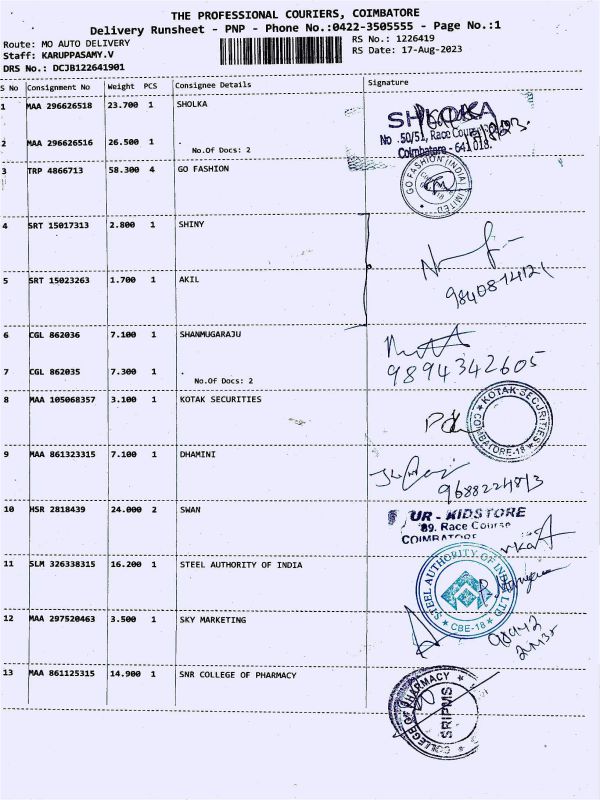 THE PROFESSIONAL COURIERS, COIMBATORE
Delivery Runsheet - PNP - Phone No.:0422-3505555 - Page No.:1
Route: MO AUTO DELIVERY
RS No.: 1226419
Staff: KARUPPASAMY.V
RS Date: 17-Aug-2023
DRS No.: DCJB122641901
S No Consignment No Weight PCS Consignee Details Signature
1 MAA 296626518 23.700 1 SHOLKA
SHOLKA
No .50/51, Race Course
Coimbatore - 641 018.
2 MAA 296626516 26.500 1 .
No.Of Docs: 2
3 TRP 4866713 58.300 4 GO FASHION
GO FASHION (INDIA) LIMITED
4 SRT 15017313 2.800 1 SHINY
5 SRT 15023263 1.700 1 AKIL
9840814121
6 CGL 862036 7.100 1 SHANMUGARAJU
9894342605
7 CGL 862035 7.300 1 .
No.Of Docs: 2
8 MAA 105068357 3.100 1 KOTAK SECURITIES
KOTAK SECURITIES
COIMBATORE-18
9 MAA 861323315 7.100 1 DHAMINI
9688224813
10 HSR 2818439 24.000 2 SWAN
UR - KIDSTORE
89. Race Course
COIMBATORE
11 SLM 326338315 16.200 1 STEEL AUTHORITY OF INDIA
STEEL AUTHORITY OF INDIA LTD
CBE-18
12 MAA 297520463 3.500 1 SKY MARKETING
13 MAA 861125315 14.900 1 SNR COLLEGE OF PHARMACY
COLLEGE OF PHARMACY
SRIPMS